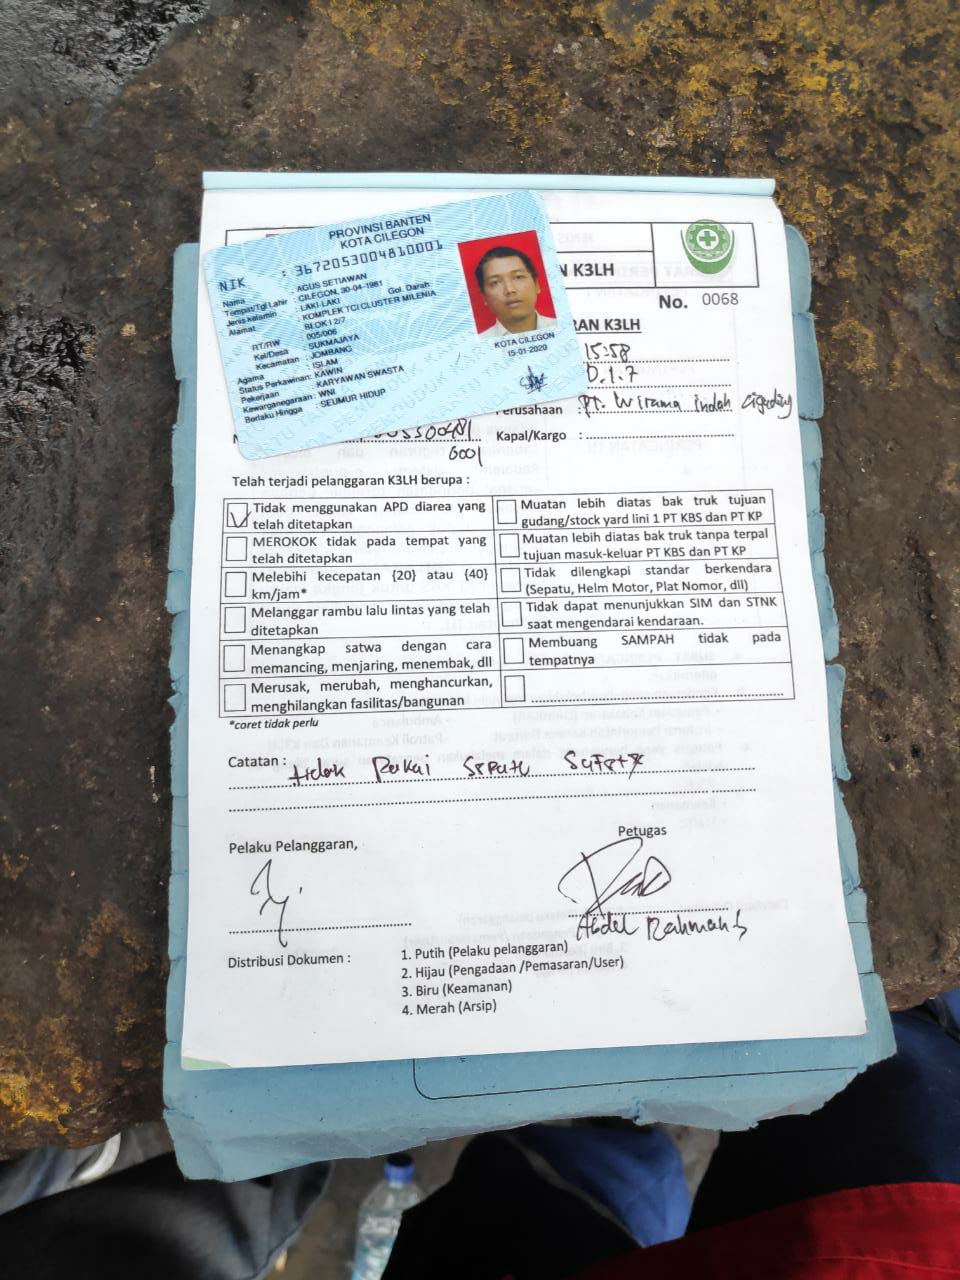 PROVINSI BANTEN
KOTA CILEGON
NIK : 3672053004810001
Nama : AGUS SETIAWAN
Tempat/Tgl Lahir : CILEGON, 30-04-1981
Jenis kelamin : LAKI-LAKI Gol. Darah :
Alamat : KOMPLEK TCI CLUSTER MILENIA
BLOK I 2/7
RT/RW : 005/006
Kel/Desa : SUKMAJAYA
Kecamatan : JOMBANG
Agama : ISLAM
Status Perkawinan: KAWIN
Pekerjaan : KARYAWAN SWASTA
Kewarganegaraan: WNI
Berlaku Hingga : SEUMUR HIDUP
KOTA CILEGON
15-01-2020
N K3LH
No. 0068
RAN K3LH
15:58
D.1.7
Perusahaan : PT. Wirama Indah Cigading
Kapal/Kargo :
6001
Telah terjadi pelanggaran K3LH berupa :
Tidak menggunakan APD diarea yang
telah ditetapkan
Muatan lebih diatas bak truk tujuan
gudang/stock yard lini 1 PT KBS dan PT KP
MEROKOK tidak pada tempat yang
telah ditetapkan
Muatan lebih diatas bak truk tanpa terpal
tujuan masuk-keluar PT KBS dan PT KP
Melebihi kecepatan {20} atau {40}
km/jam*
Tidak dilengkapi standar berkendara
(Sepatu, Helm Motor, Plat Nomor, dll)
Melanggar rambu lalu lintas yang telah
ditetapkan
Tidak dapat menunjukkan SIM dan STNK
saat mengendarai kendaraan.
Menangkap satwa dengan cara
memancing, menjaring, menembak, dll
Membuang SAMPAH tidak pada
tempatnya
Merusak, merubah, menghancurkan,
menghilangkan fasilitas/bangunan
*coret tidak perlu
Catatan : tidak Pakai Sepatu Safety
Pelaku Pelanggaran,
Petugas
Abdel Rahman S
Distribusi Dokumen :
1. Putih (Pelaku pelanggaran)
2. Hijau (Pengadaan /Pemasaran/User)
3. Biru (Keamanan)
4. Merah (Arsip)